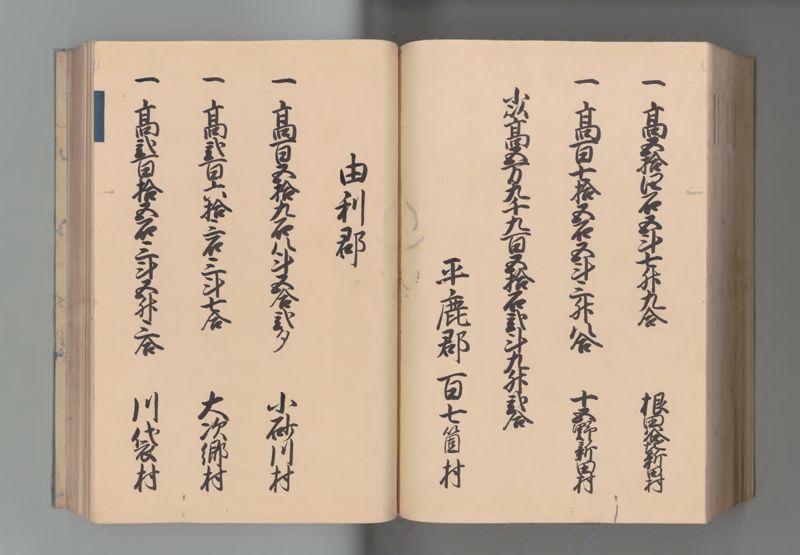 一 高五拾四石五斗七升九合 根田谷新田村
一 高百七拾五石五斗三升八合 十五野新田村
小以高五万九千九百五拾石弐斗九升弐合
平鹿郡 百七箇村
由利郡
一 高百五拾九石八斗五合弐夕 小砂川村
一 高弐百六拾三石三斗七合 大須郷村
一 高弐百拾五石三斗五升三合 川袋村